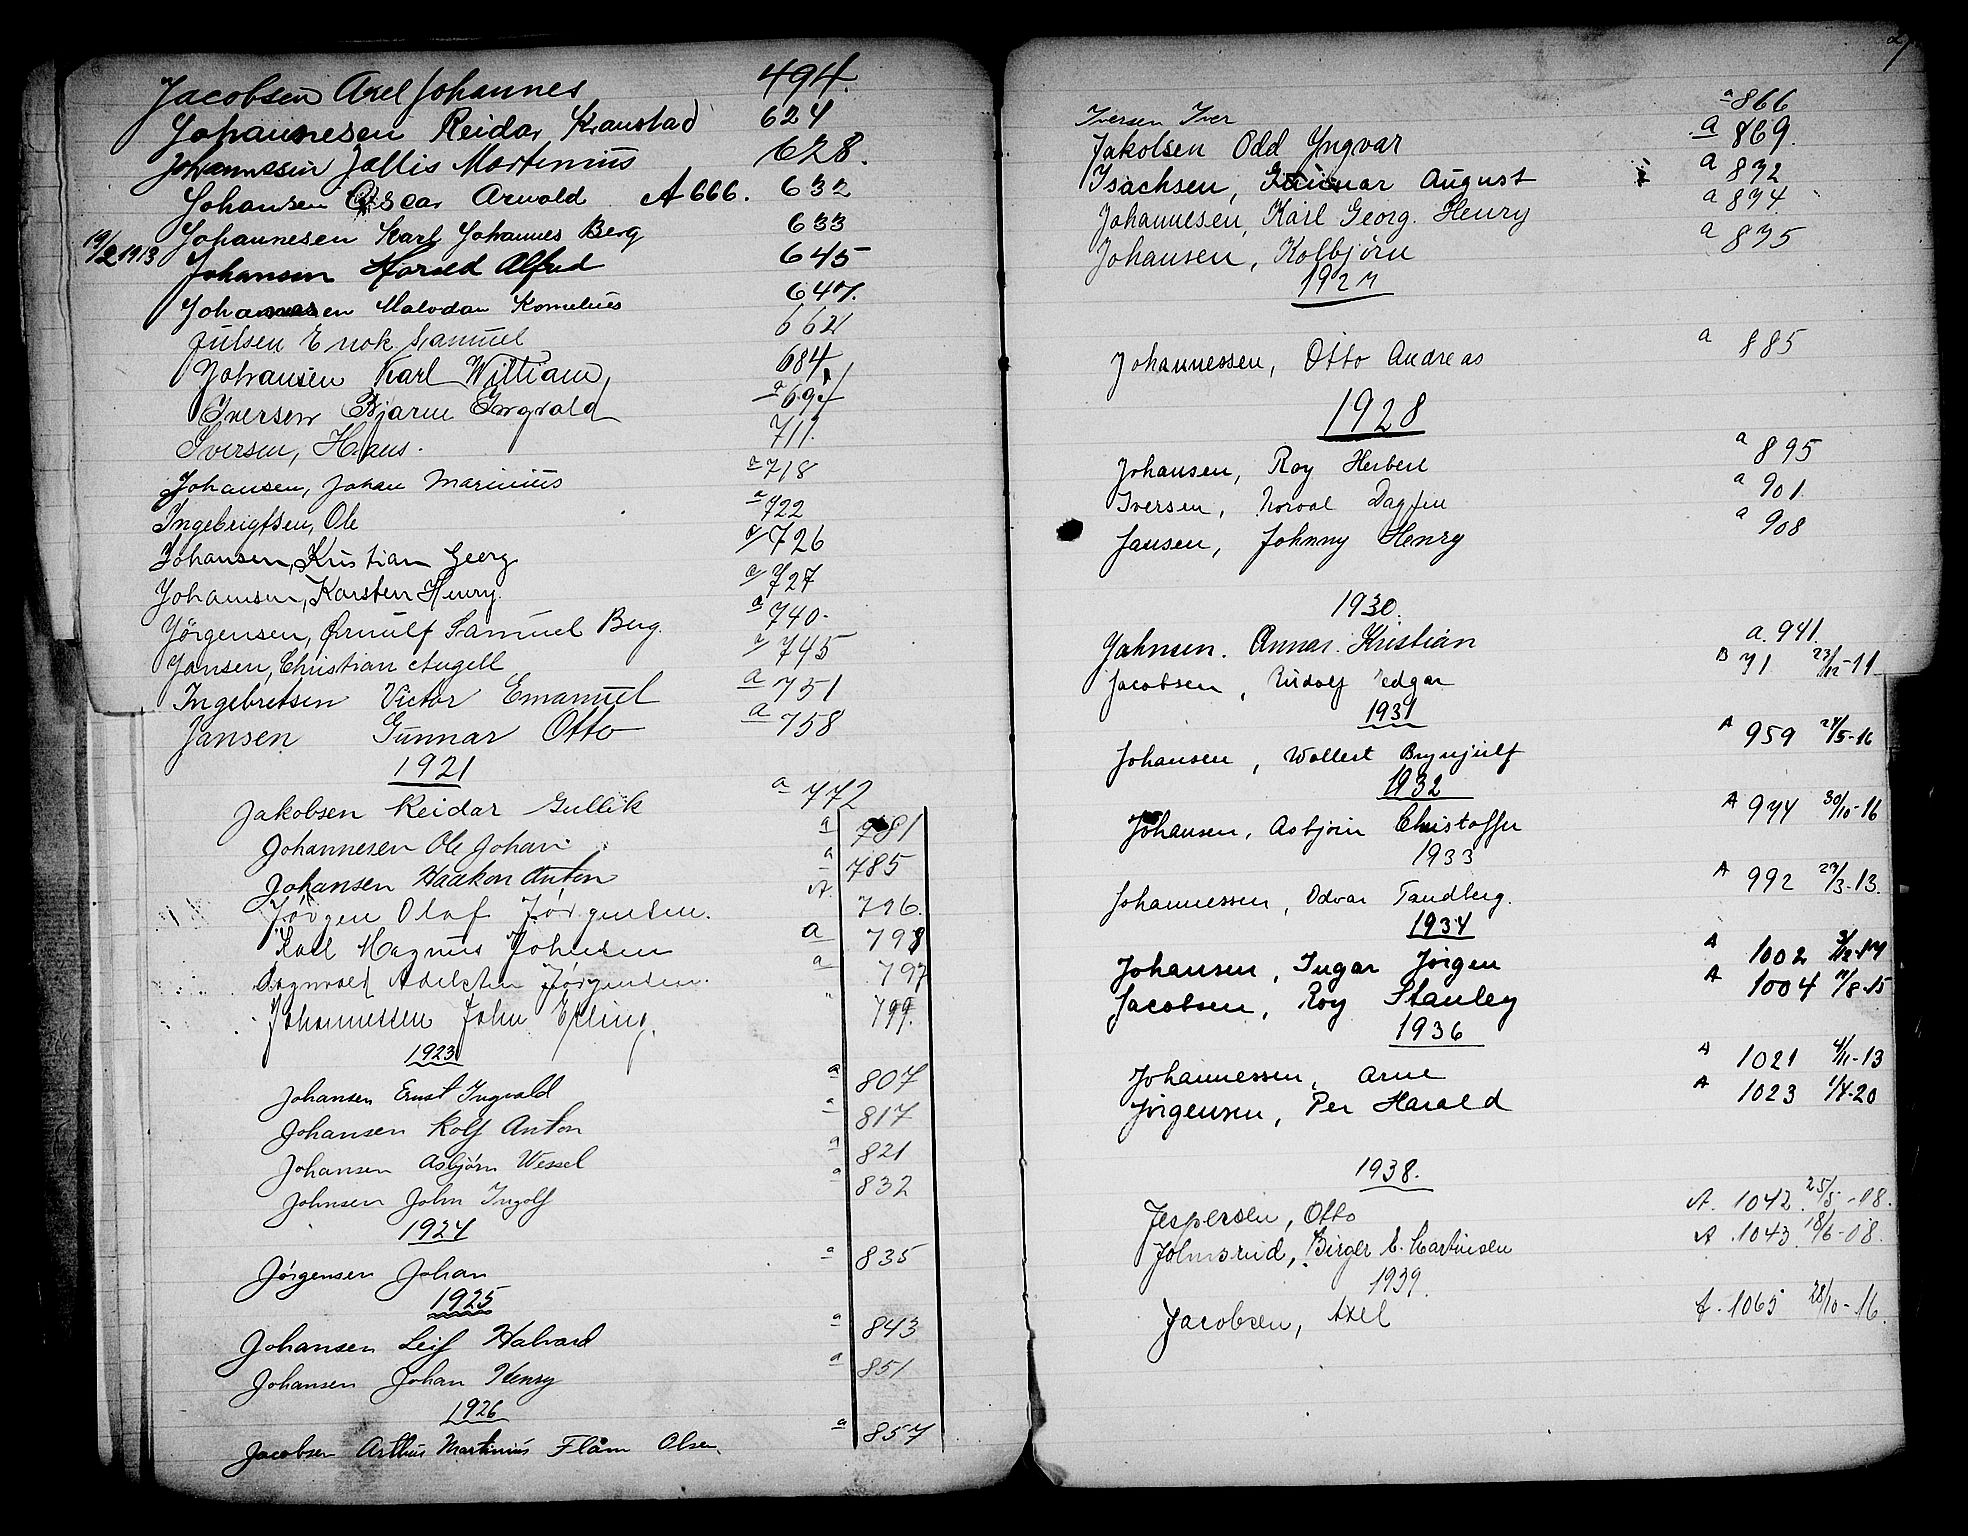 Jacobsen Axel Johannes 494.
Johannesen Reidar Kraustad 624
Johannesen Jallis Martinius 628.
Johansen Oscar Arvald A 666. 632
Johannesen Karl Johannes Berg 633
19/2 1913 Johansen Harald Alfred 645
Johannesen Halvdan Kornelius 647.
Julsen Enok Samuel 662
Johansen Karl William 684
Iversen Bjarne Ingvald a 694
Iversen, Hans. 711.
Johansen, Johan Marinius a 718
Ingebrigtsen, Ole a 722
Johansen, Kristian Georg a 726
Johansen, Karsten Henry a 727
Jörgensen, Ørnulf Samuel Berg. a 740.
Jansen, Christian Angell a 745
Ingebretsen Victor Emanuel a 751
Jansen Gunnar Otto a 758
1921
Jakobsen Reidar Gullik a 772
Johannesen Ole Johan a 781
Johansen Haakon Anton a 785
Jørgen Olaf Jørgensen. A 796.
Karl Magnus Johnsen a 798
Adelsten Jørgensen. a 797
Johannessen John Erling. " 799.
1923
Johansen Ernst Ingvald a 807
Johansen Rolf Anton a 817
Johansen Asbjørn Wessel a 821
Johnsen John Ingolf a 832
1924
Jørgensen Johan a 835
1925
Johansen Leif Halvard a 843
Johansen Johan Henry a 851
1926
Jacobsen Arthur Martinius Flåm Olsen a 857
Iversen Iver a 866
Jakolsen Odd Yngvar a 869.
Isachsen, Gunnar August a 872
Johannesen, Karl Georg. Henry a 874
Johansen, Kolbjørn a 875
1927
Johannessen, Otto Andreas a 885
1928
Johansen, Roy Herbert a 895
Iversen, Norval Dagfin a 901.
Jansen, Johnny Henry a 908
1930.
Jahnsen. Annar. Kristian a. 941.
Jacobsen, Rudolf Edgar B 71 23/12-11
1931
Johansen, Wollert Brynjulf A 959 24/5-16
1932
Johansen, Asbjørn Christoffer A 974 30/10-16
1933
Johannessen, Odvar Tandberg. A 992 29/3-13.
1934
Johansen, Ingar Jørgen A 1002 3/12-14
Jacobsen, Roy Stanley A 1004 11/8-15
1936
Johannessen, Arne A 1021 4/11-13
Jørgensen, Per Harald A 1023 1/4-20
1938.
Jespersen, Otto A. 1042. 25/5-08.
Johnsrud, Birger E. Martinsen A. 1043. 18/6-08.
1939.
Jacobsen, Axel A. 1065 28/10-16.